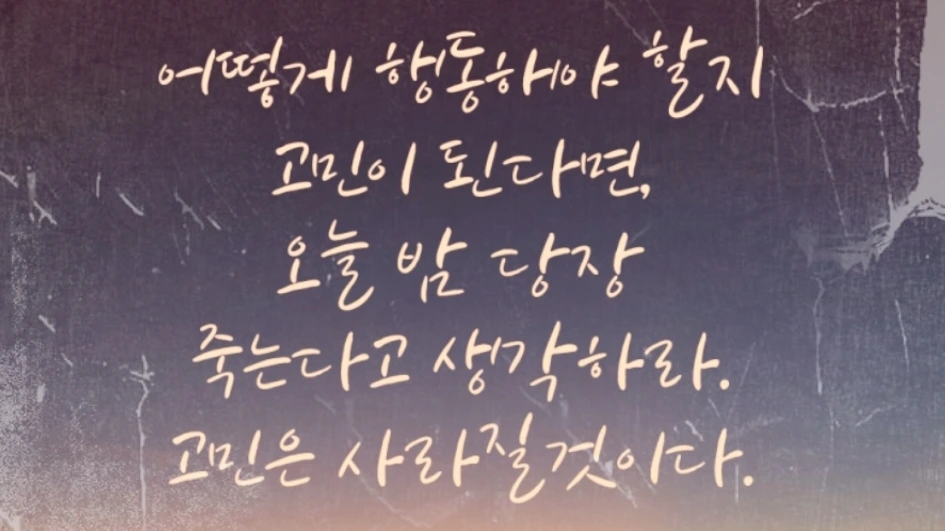 어떻게 행동해야 할지
고민이 된다면,
오늘 밤 당장
죽는다고 생각하라.
고민은 사라질것이다.